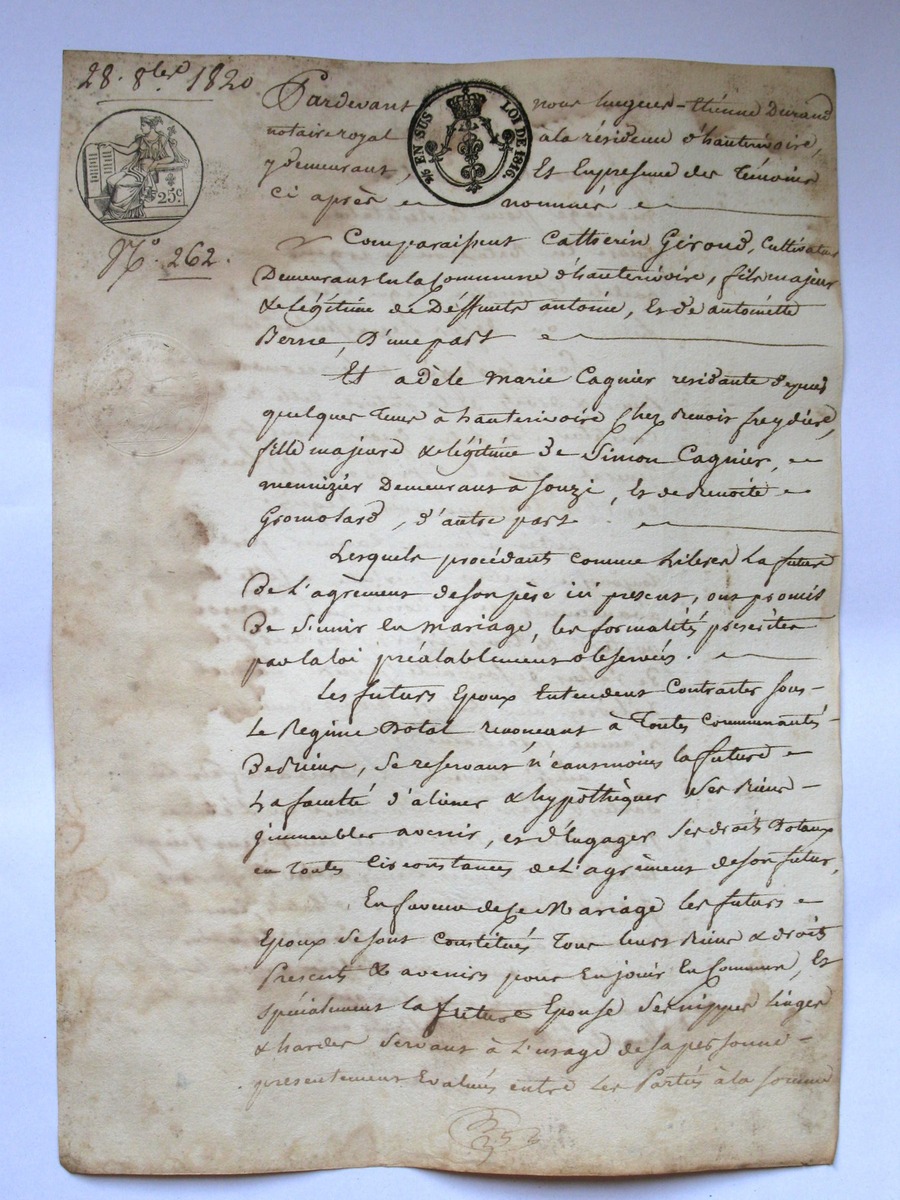 28. 8bre 1820
Pardevant nous hugues-Etienne Durand
notaire royal a la résidence d'hauterivoire,
y demeurant, Et En presence des Témoins
Ci après nommés
⅘ EN SUS LOI DE 1816.
25c
N.o 262.
Comparaissent Catherin Giroud, Cultivateur
Demeurant en la Commune d'hauterivoire, fils majeur
& légitime de Deffunts antoine, Et de antoinette
D'une part
Et adèle marie Cagnier residante depuis
quelques tems à hauterivoire Chez Benoit freydière,
fille majeure & légitime de Simon Cagnier,
mennizier Demeurant à Souzi, Et de Benoite
Gromolard, d'autre part
Lesquels procédants comme Libres La future
De L'agrément de son père ici present, ont promis
De s'unir en mariage, les formalités prescrites
par la loi préalablement observées.
Les futurs Epoux Entendent Contracter sous
Le Regime Dotal renoncant à Toutes Communautés
De Biens, se reservant n'éausmoins la future
La faculté d'aliéner & hypothèquer ses Biens
immeubles avenir, et d'Engager ses droits Dotaux
en Toutes Circonstances de L'agrément de son futur,
En faveur de ce Mariage les futurs
Epoux se sont Constitués Tous leurs Biens & droits
Presents & avenirs pour En jouir En Commun, Et
spécialement la future Epouse ses nippes linges
& hardes servant à L'usage de sa personne
presentement Evalués entre Les Parties à la somme